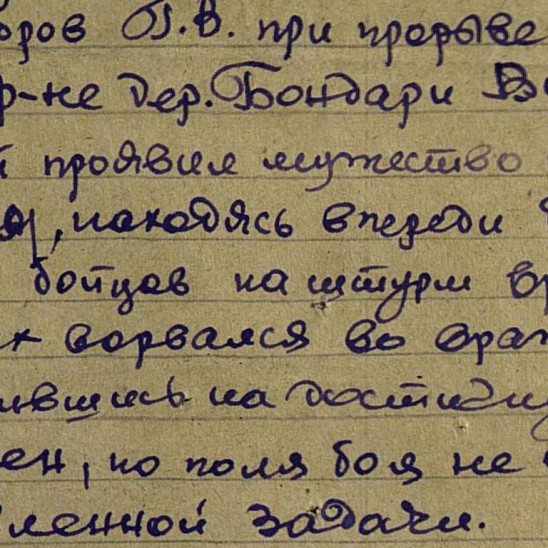 оров П.В. при прорыве
р-не дер. Бондари В
й проявил мужество
, находясь впереди
бойцов на штурм вр
к ворвался во враж
ившись на достигну
ен, но поля боя не
ленной задачи.